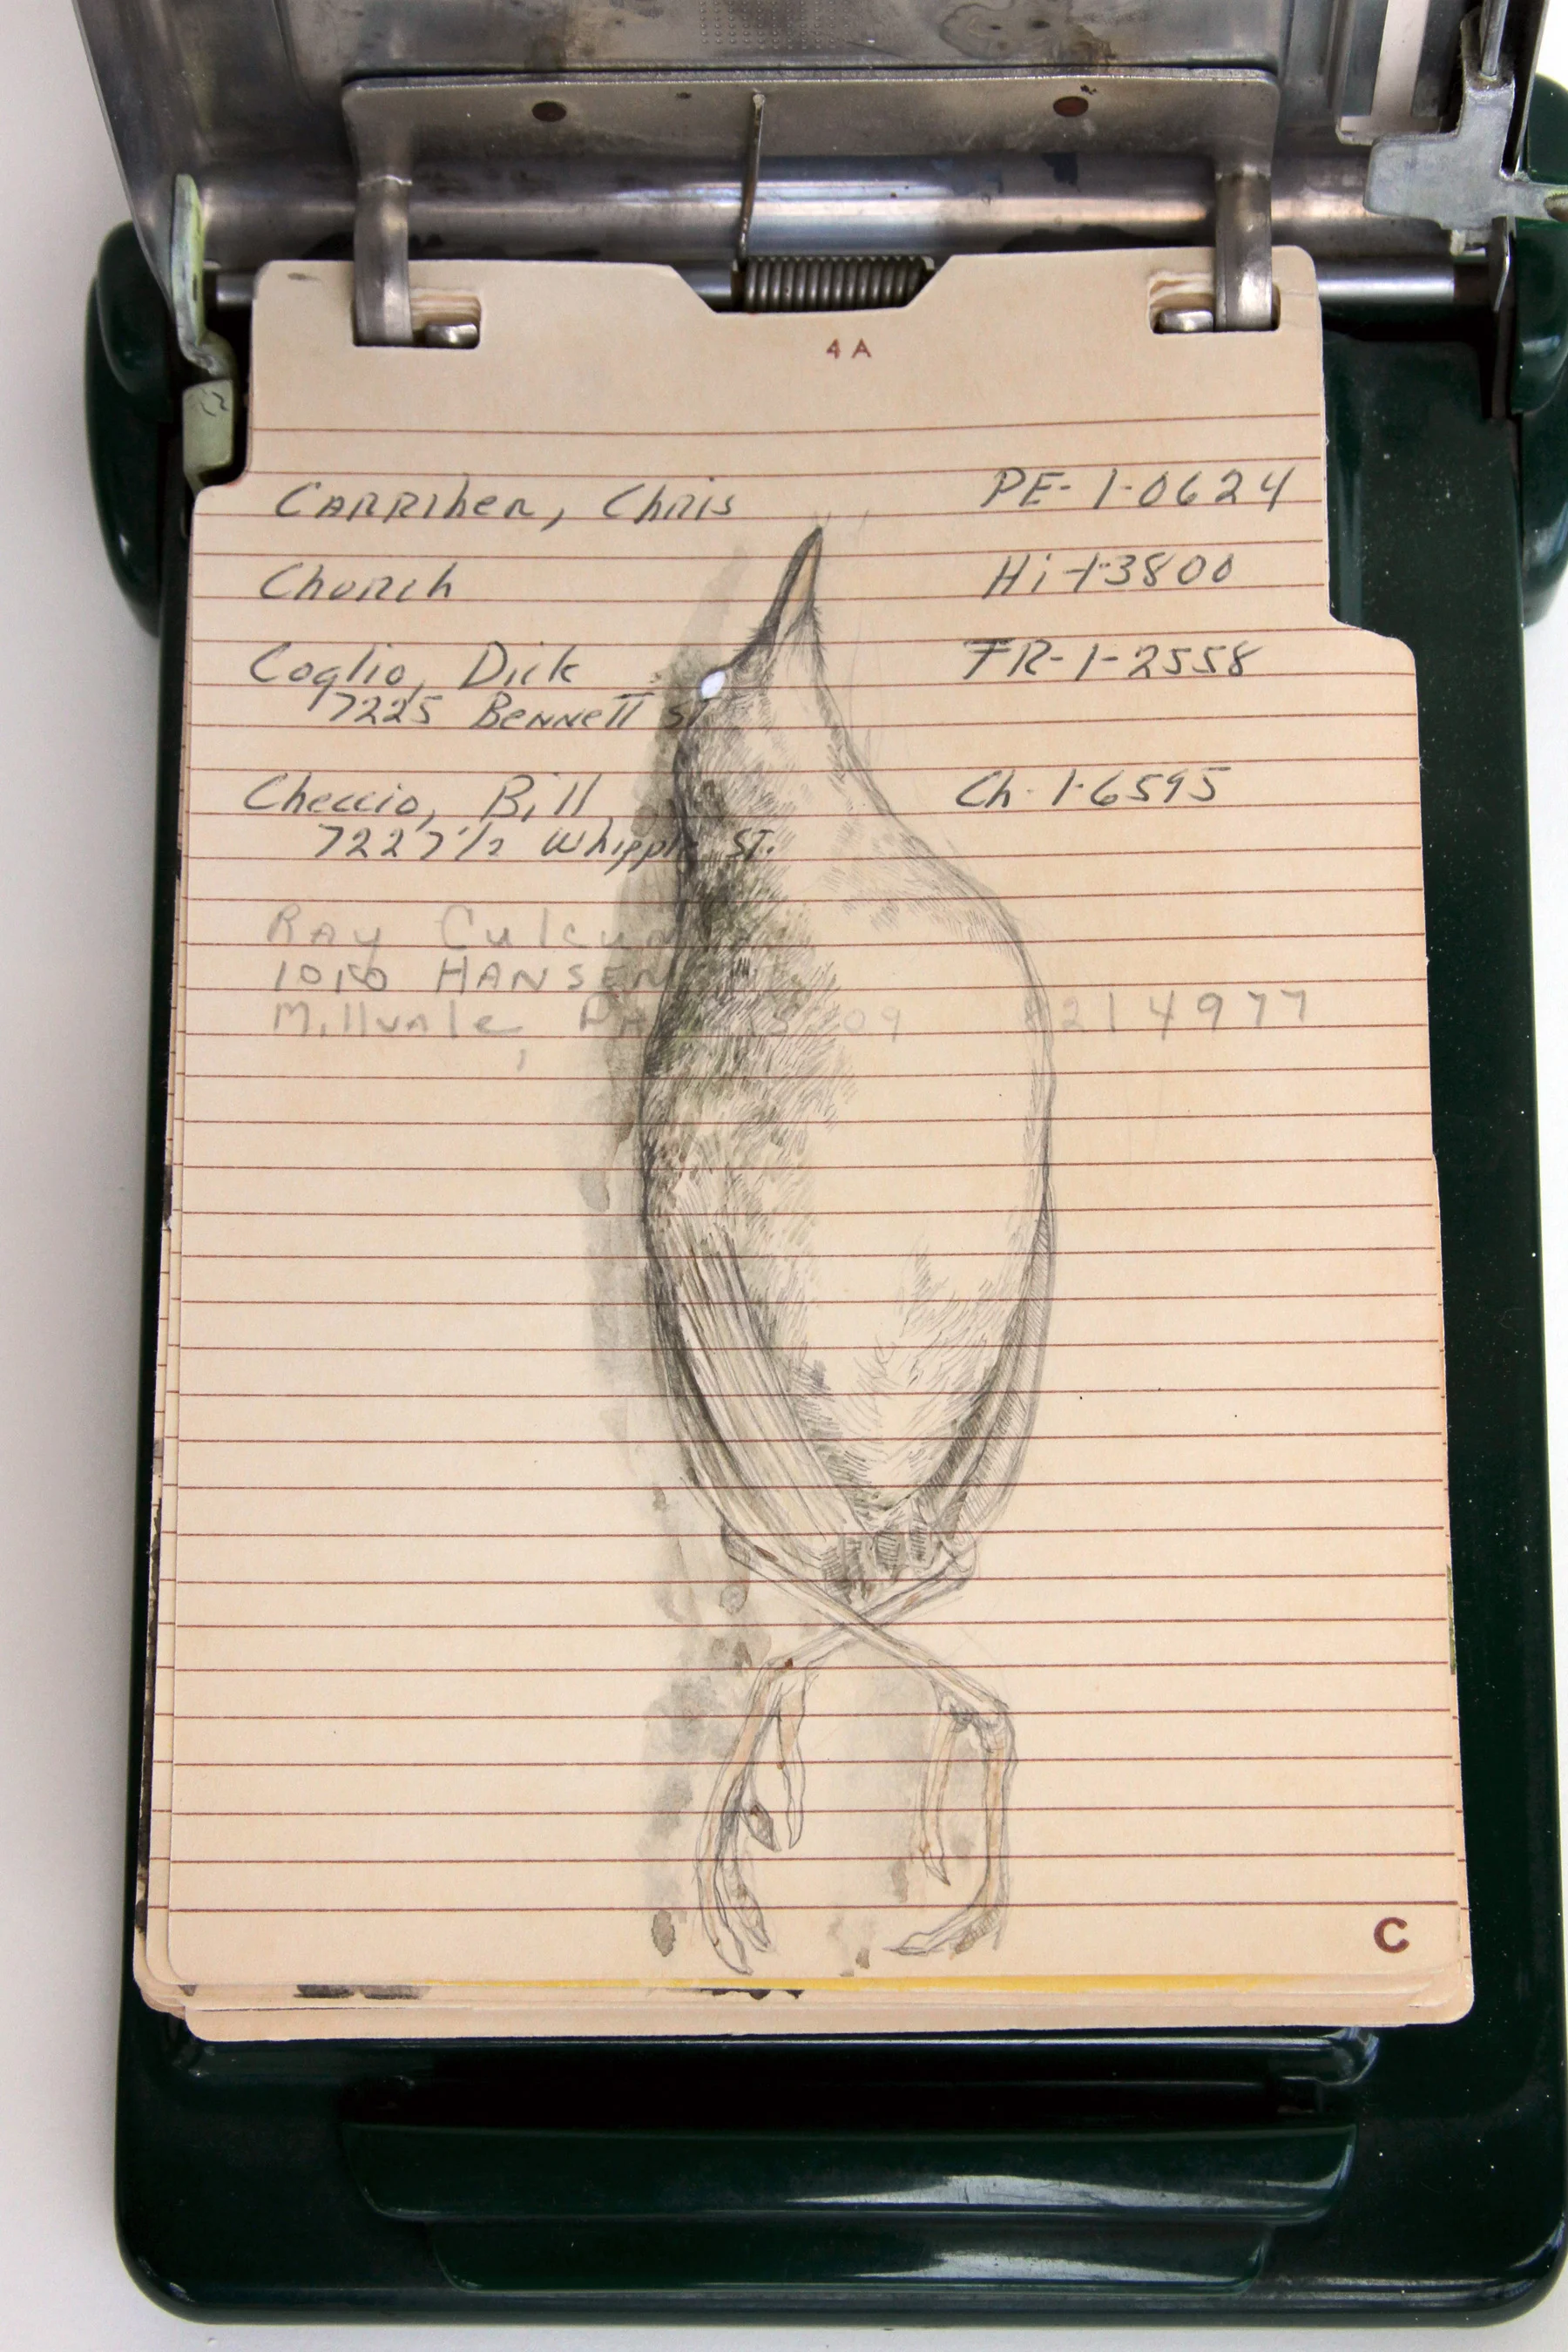 4 A
CARRIher, Chris PE-1-0624
Church Hi-1-3800
Coglio, Dick FR-1-2558
7225 Bennett ST
Checcio, Bill Ch-1-6595
7227 1/2 Whipple ST.
RAy
HANSEN
Millvale, PA 09 8214977
C